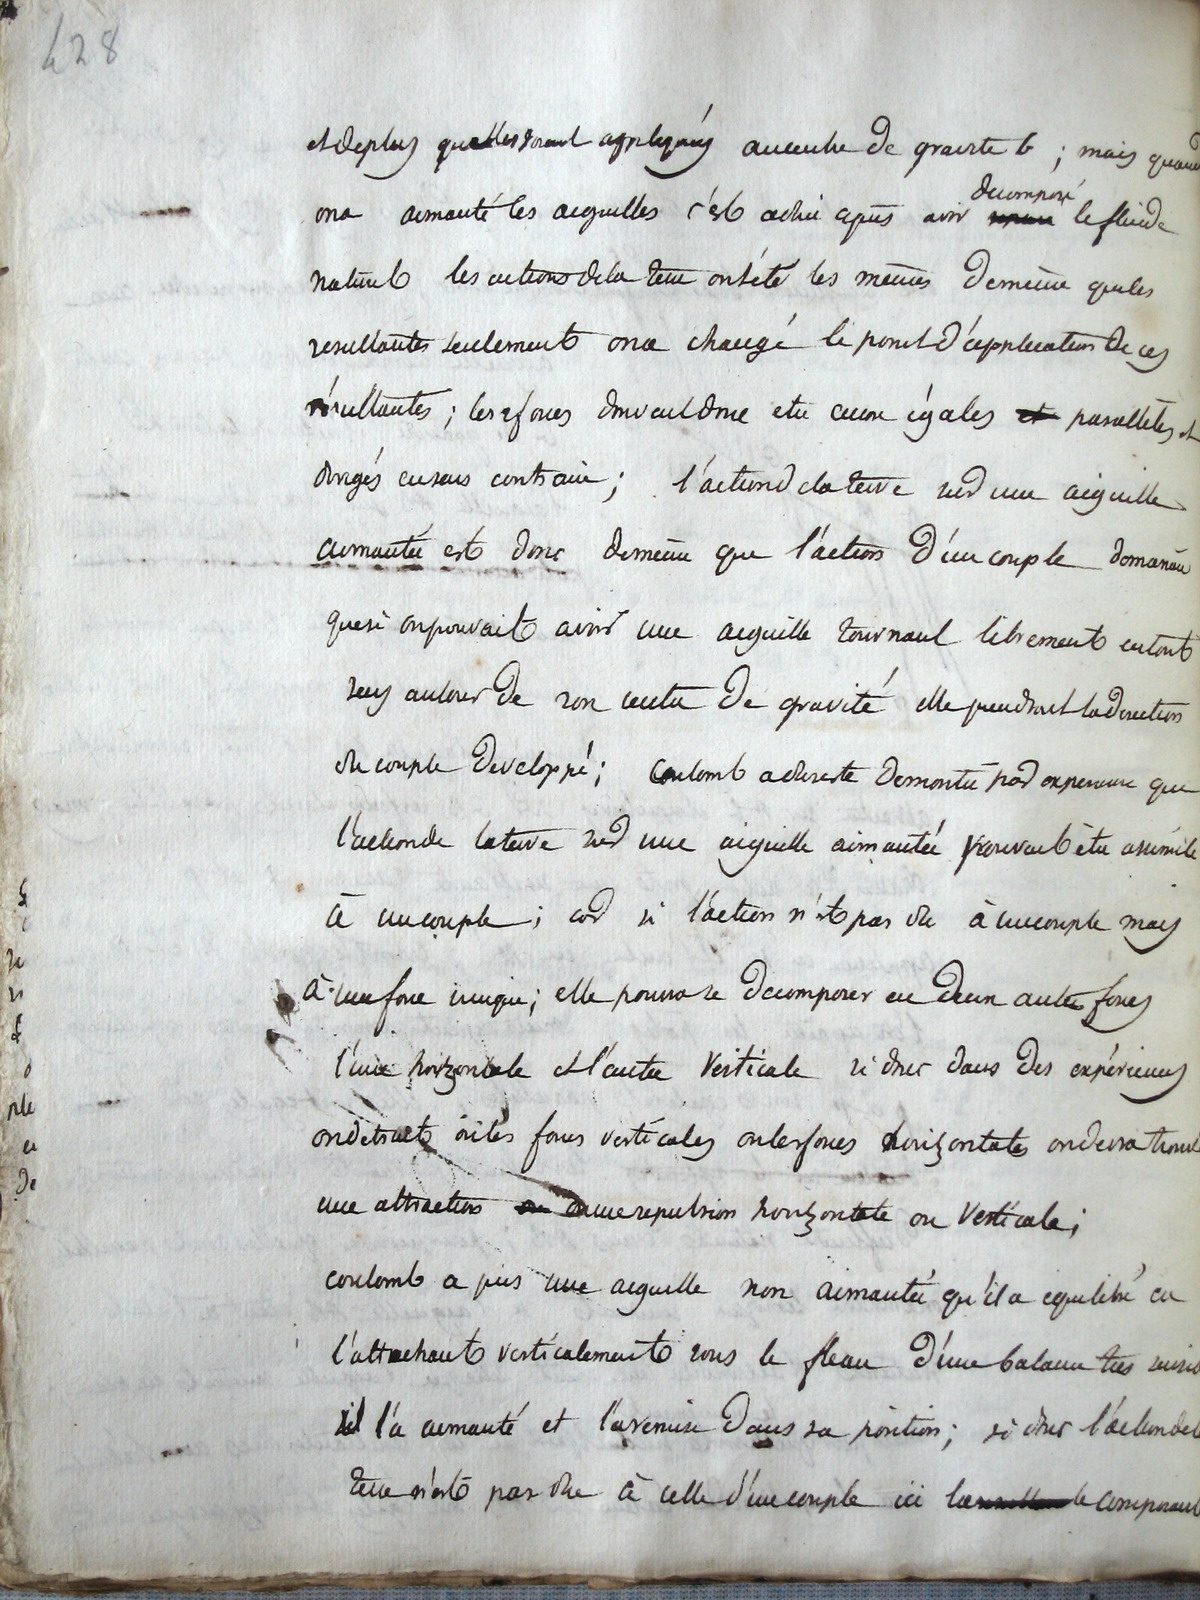 428
et de plus qu'elles soient appliqués au centre de gravité ; mais quand
on a aimanté les aiguilles c'est adire après avoir decomposé le fluide
naturel les actions de la terre ont été les mêmes de même que les
resultantes seulement on a changé le point d'application de ces
résultantes ; les 2 forces doivent donc etre encore égales et paralleles et
dirigés en sens contraire ; l'action de la terre sur une aiguille
aimantée est donc de même que l'action d'un couple de manière
que si on pouvait avoir une aiguille tournant librement en tout
sens autour de son centre de gravité elle prendrait la direction
du couple developpé ; Coulomb a demontré par experience que
l'action de la terre sur une aiguille aimantée pouvait être assimilé
à un couple ; car si l'action n'est pas due à un couple mais
à une force unique ; elle pourra se decomposer en deux autres forces
l'une horizontale et l'autre verticale si donc dans des expériences
on detruit les forces verticales ou les forces horizontales on devra
une attraction ou une repulsion horizontale ou verticale ;
coulomb a pris une aiguille non aimantée qu'il a equilibré en
l'attachant verticalement sous le fleau d'une balance très
il l'a aimanté et l'a remise dans sa position ; si donc l'action de la
terre n'est pas due à celle d'un couple ici la composant